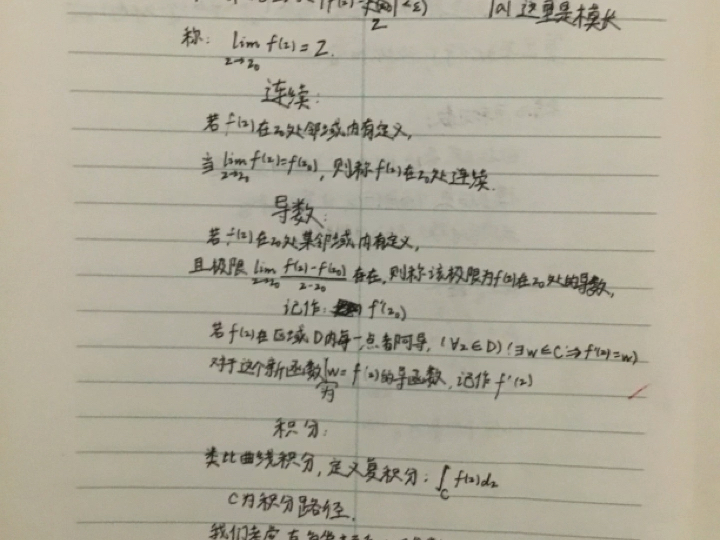 |a| 这里是模长
称: lim f(z)=Z
z→z₀
连续:
若 f(z)在z₀处邻域内有定义,
当 lim f(z)=f(z₀), 则称f(z)在z₀处连续.
z→z₀
导数:
若 f(z)在z₀处某邻域内有定义,
且极限 lim (f(z)-f(z₀))/(z-z₀) 存在, 则称该极限为f(z)在z₀处的导数,
z→z₀
记作: f'(z₀)
若 f(z)在区域D内每一点都可导, (∀z∈D)(∃w∈C⇒f'(z)=w)
对于这个新函数 为 w=f(z)的导函数, 记作 f'(z)
积分:
类比曲线积分, 定义复积分: ∫_C f(z)dz
C为积分路径.
我们考虑